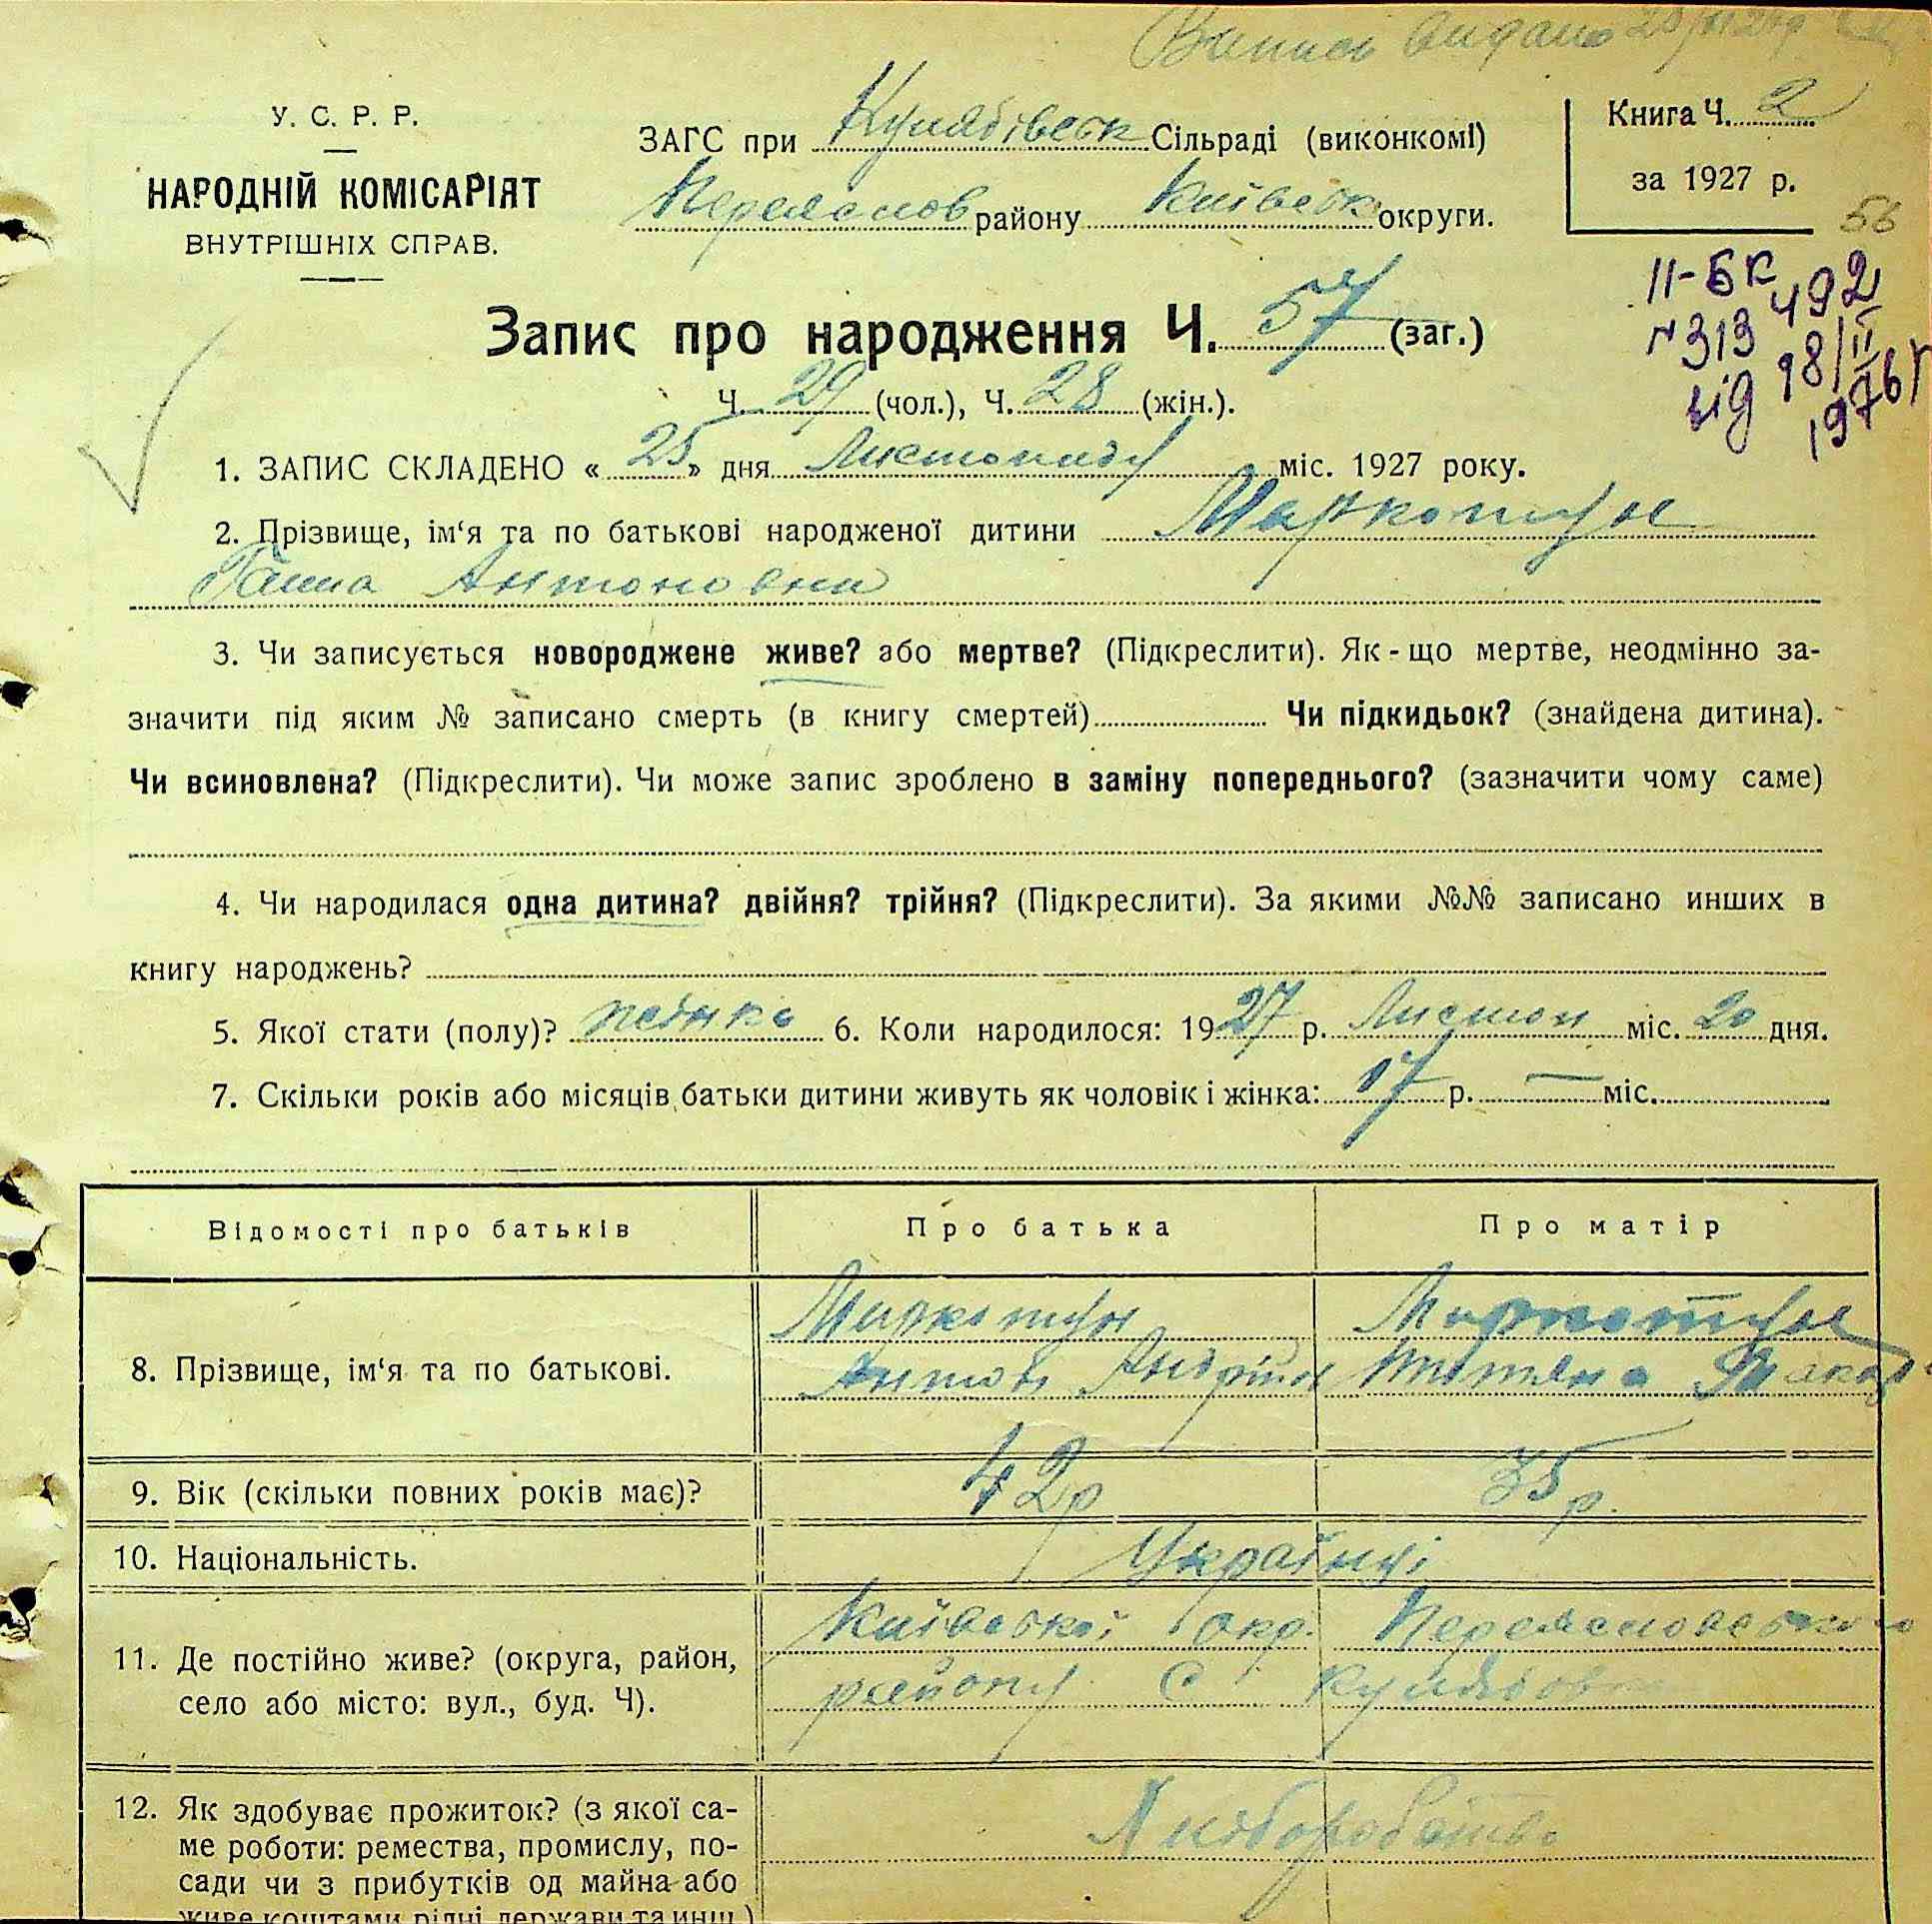 Випись видано
У. С. Р. Р.
НАРОДНІЙ КОМІСАРІЯТ
ВНУТРІШНІХ СПРАВ.
ЗАГС при Кулябівськ Сільраді (виконкомі)
Переяслов району Київськ округи.
Книга Ч. 2
за 1927 р.
56
II-БК 492
N 313
від 18/II
1976 р
Запис про народження Ч. 57 (заг.)
Ч. 29 (чол.), Ч. 28 (жін.).
1. ЗАПИС СКЛАДЕНО « 25 » дня Листопаду міс. 1927 року.
2. Прізвище, ім‘я та по батькові народженої дитини Маркотун
Ганна Антоновна
3. Чи записується новороджене живе? або мертве? (Підкреслити). Як-що мертве, неодмінно за-
значити під яким № записано смерть (в книгу смертей) Чи підкидьок? (знайдена дитина).
Чи всиновлена? (Підкреслити). Чи може запис зроблено в заміну попереднього? (зазначити чому саме)
4. Чи народилася одна дитина? двійня? трійня? (Підкреслити). За якими №№ записано инших в
книгу народжень?
5. Якої стати (полу)? жінка 6. Коли народилося: 1927 р. Листоп міс. 20 дня.
7. Скільки років або місяців батьки дитини живуть як чоловік і жінка: 17 р. — міс.
Відомості про батьків Про батька Про матір
8. Прізвище, ім‘я та по батькові.
Маркотун Маркотун
Антон Андрійов Тетяна Макар
9. Вік (скільки повних років має)? 42р 35р.
10. Національність. Українці
11. Де постійно живе? (округа, район,
село або місто: вул., буд. Ч).
Київської окр. Переясловського
району с Кулябовка
12. Як здобуває прожиток? (з якої са-
ме роботи: ремества, промислу, по-
сади чи з прибутків од майна або
живе коштами рідні, держави та инш.)
Хліборобство